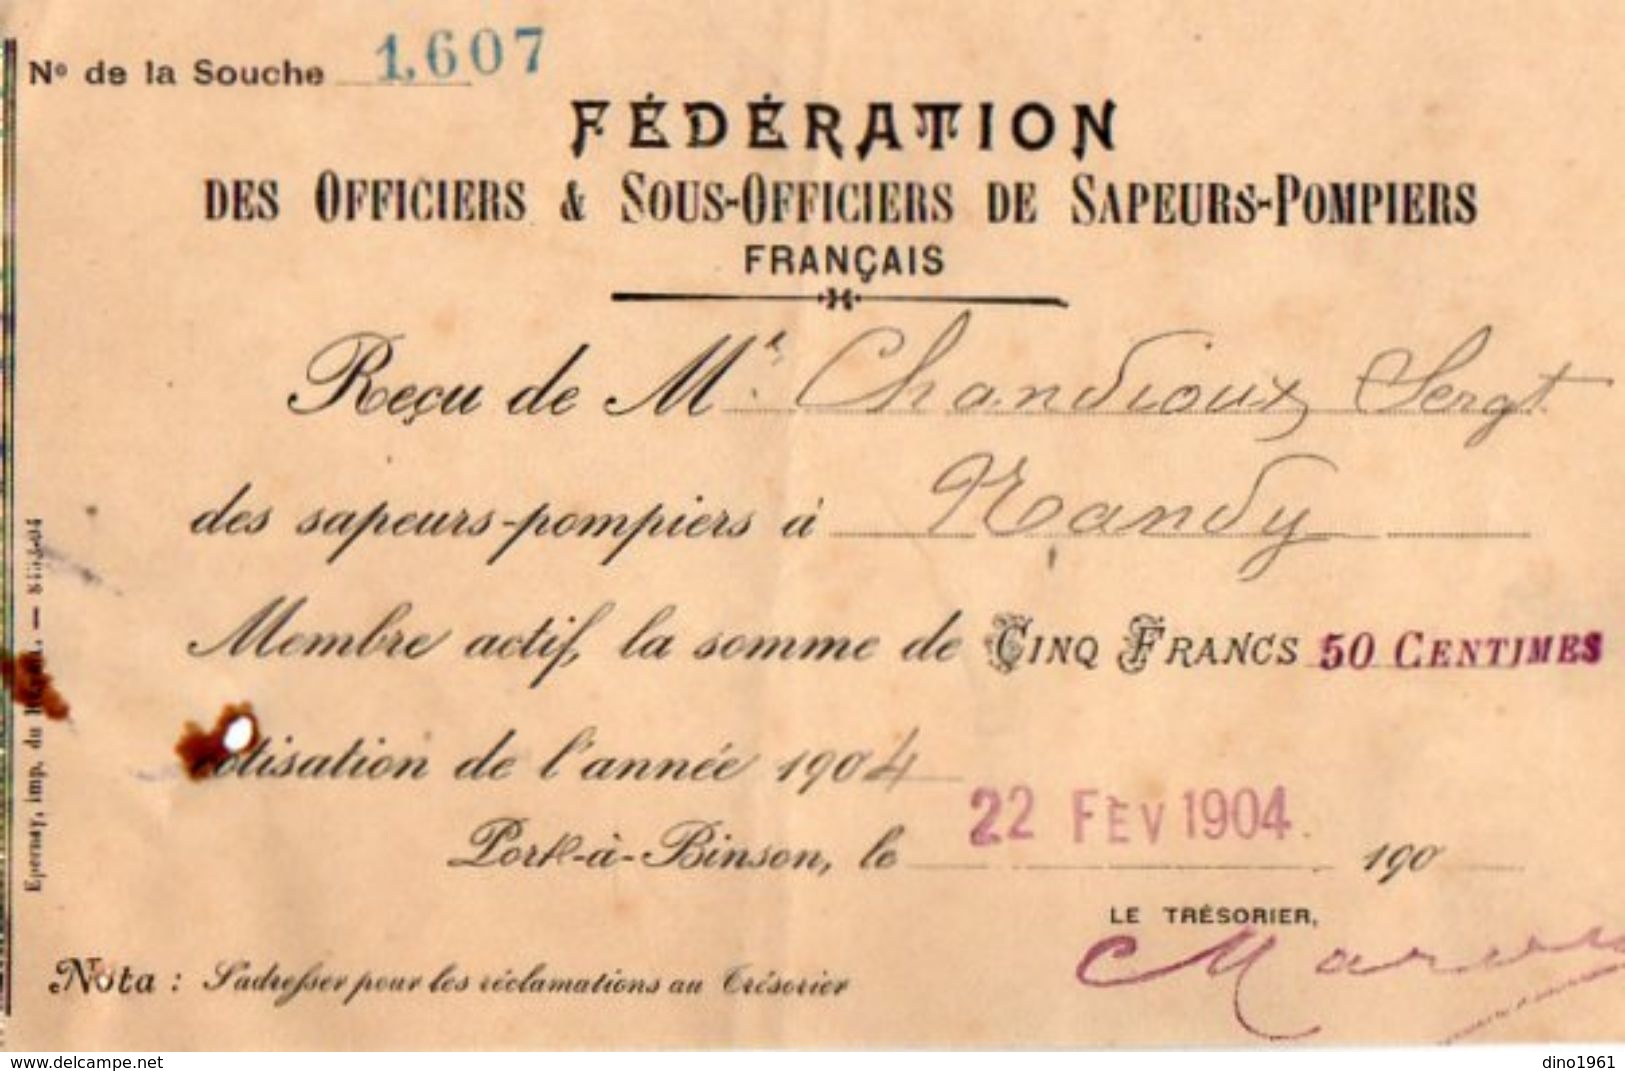 No de la Souche 1,607
FÉDÉRATION
DES OFFICIERS & SOUS-OFFICIERS DE SAPEURS-POMPIERS
FRANÇAIS
Reçu de Mr. Chandioux Sergt
des sapeurs-pompiers à Randy
Membre actif, la somme de CINQ FRANCS 50 CENTIMES
cotisation de l'année 1904
Port-à-Binson, le 22 FEV 1904 190
LE TRÉSORIER,
Nota : S'adresser pour les réclamations au Trésorier
Epernay, imp. du
www.delcampe.net
dino1961